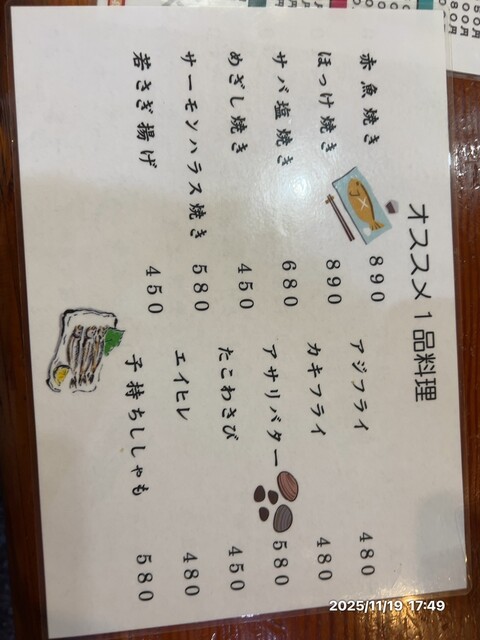 オススメ1品料理
赤魚焼き 890
ほっけ焼き 890
サバ塩焼き 680
めざし焼き 450
サーモンハラス焼き 580
若さぎ揚げ 450
アジフライ 480
カキフライ 480
アサリバター 580
たこわさび 450
エイヒレ 480
子持ちししゃも 580
2025/11/19 17:49